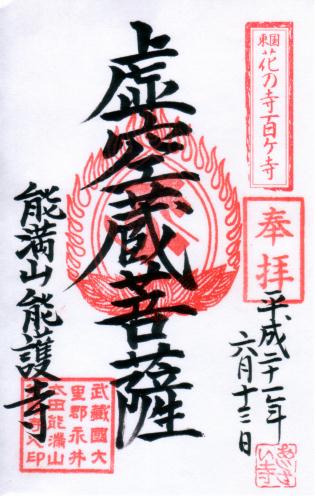 東国
花の寺百ヶ寺
奉拝
平成二十一年
六月十三日
あじさい寺
虚空蔵菩薩
能満山能護寺
武藏國大
里郡永井
太田能満山